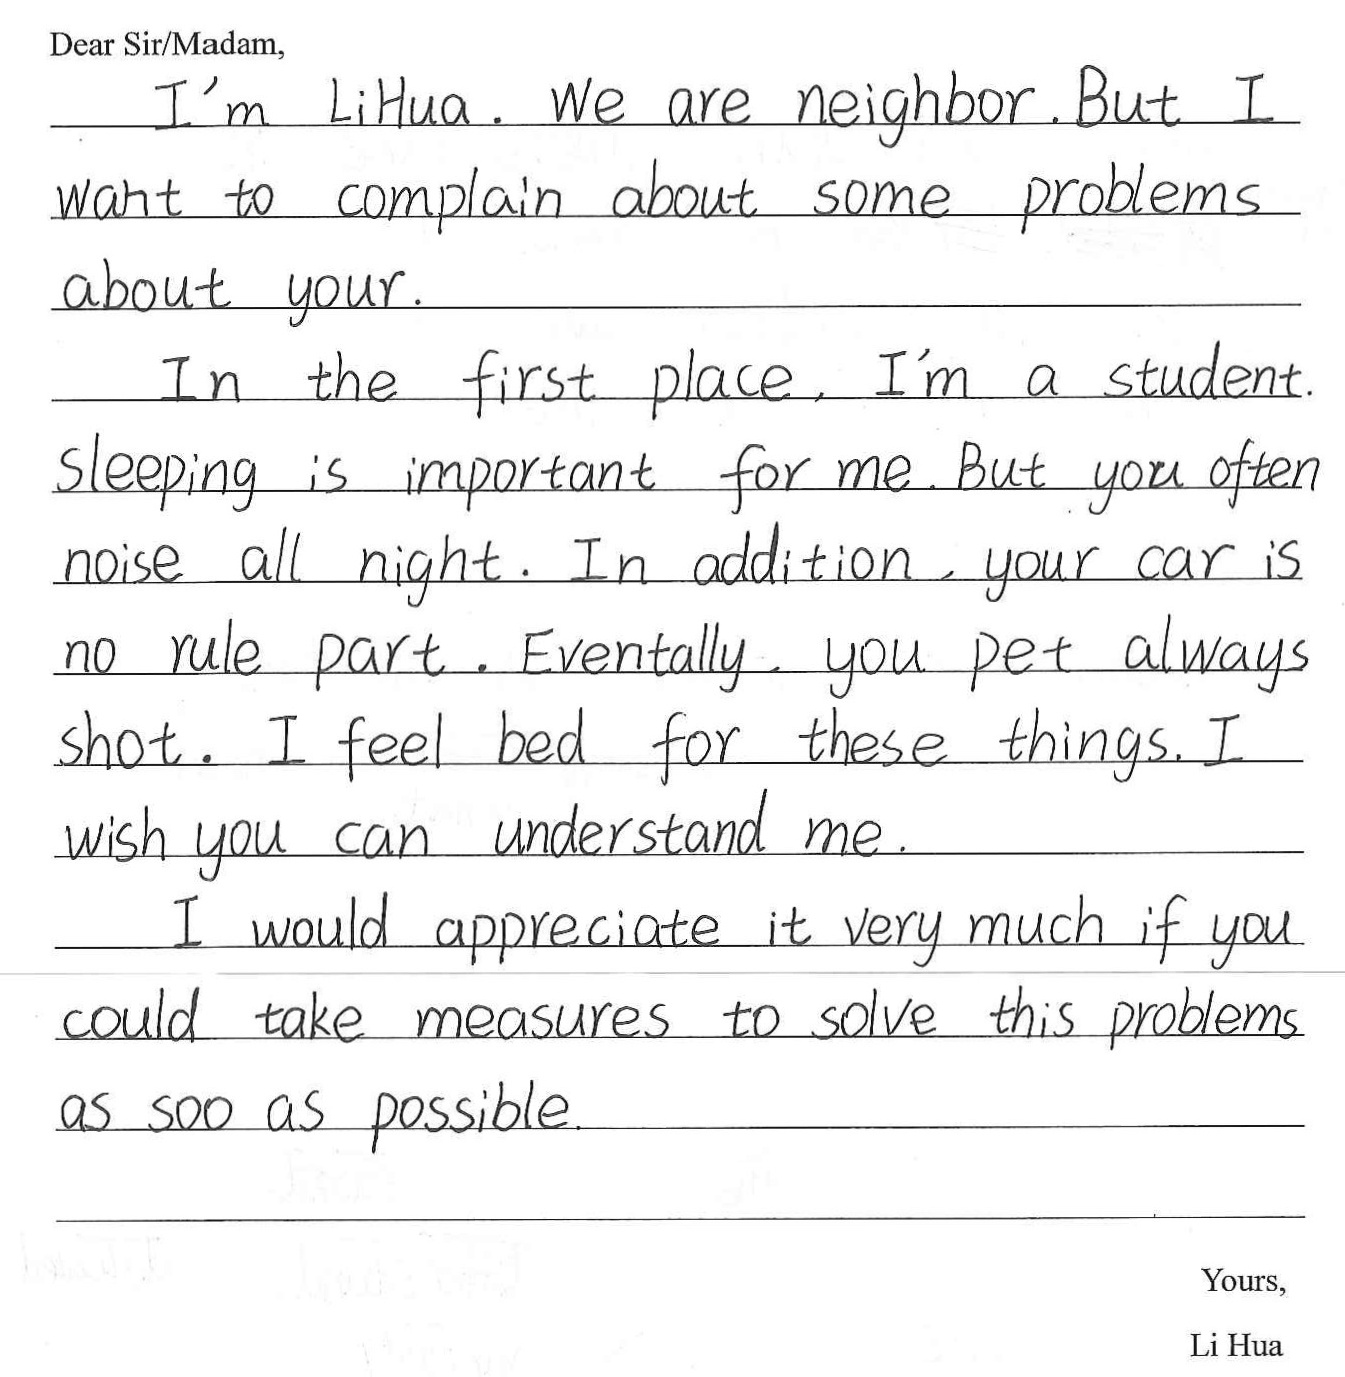 Dear Sir/Madam,
I'm LiHua. We are neighbor. But I
want to complain about some problems
about your.
In the first place, I'm a student.
Sleeping is important for me. But you often
noise all night. In addition, your car is
no rule part. Eventally, you pet always
shot. I feel bed for these things. I
wish you can understand me.
I would appreciate it very much if you
could take measures to solve this problems
as soo as possible.
Yours,
Li Hua